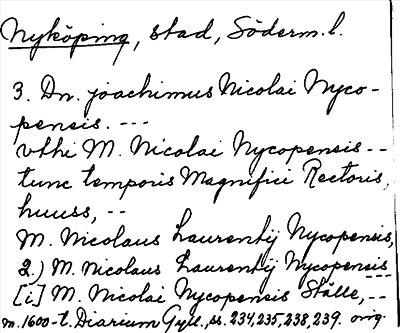 Nyköping, stad, Söderm. l.
3. Dn. joachimus Nicolai Nyco-
pensis. ---
vthi M. Nicolai Nycopensis --
tunc temporis Magnifici Rectoris,
huuss, --
M. Nicolaus Laurentij Nycopensis,
2.) M. Nicolaus Laurentij Nycopensis ---
[i] M. Nicolai Nycopensis Ställe, --
m. 1600-t. Diarium Gyll., ss. 234, 235, 238, 239. orig.